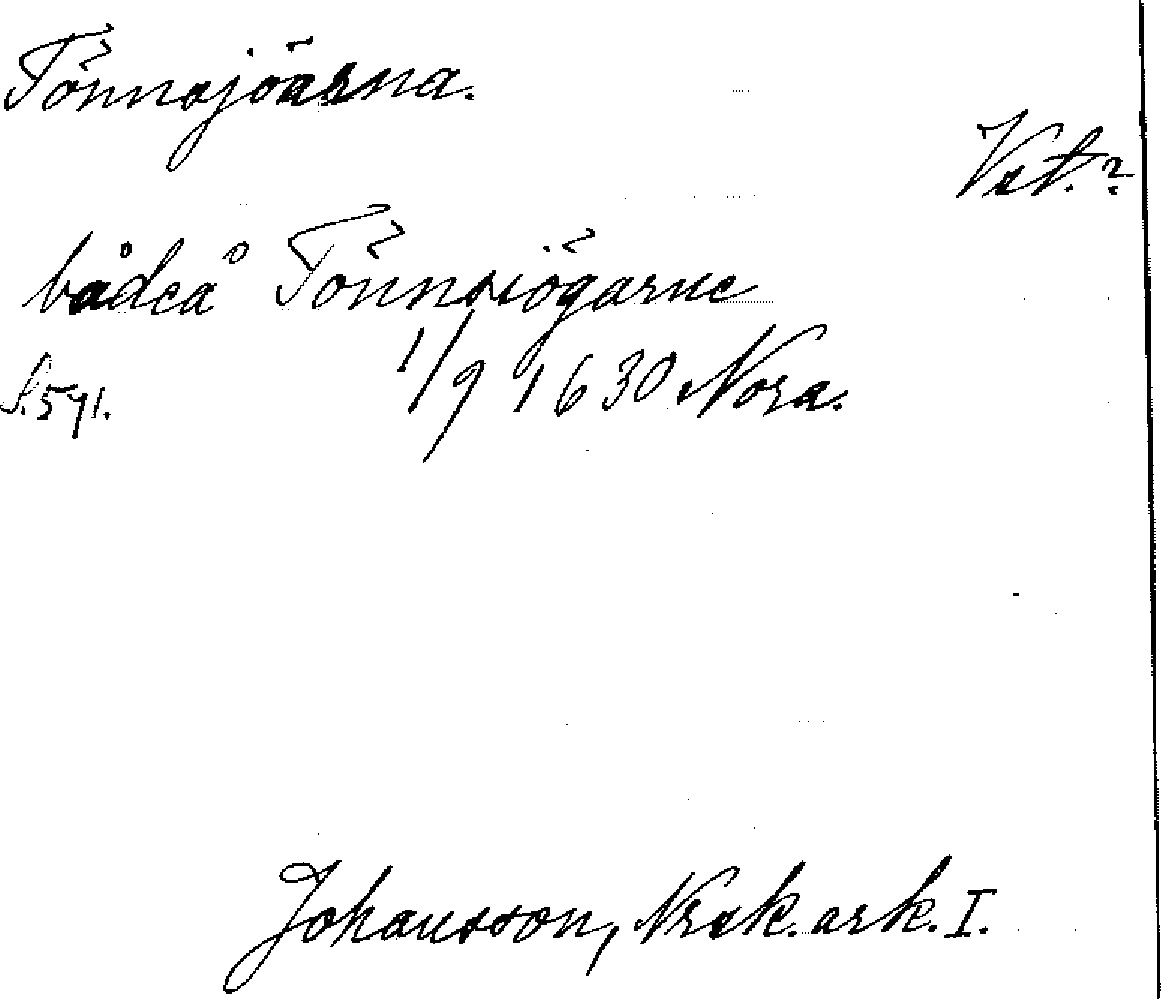 Tönnsjöarna.
Vst.?
bådeå Tönnsiögarne
S.571. 1/9 1630 Nora.
Johansson, Nrsk. ark. I.